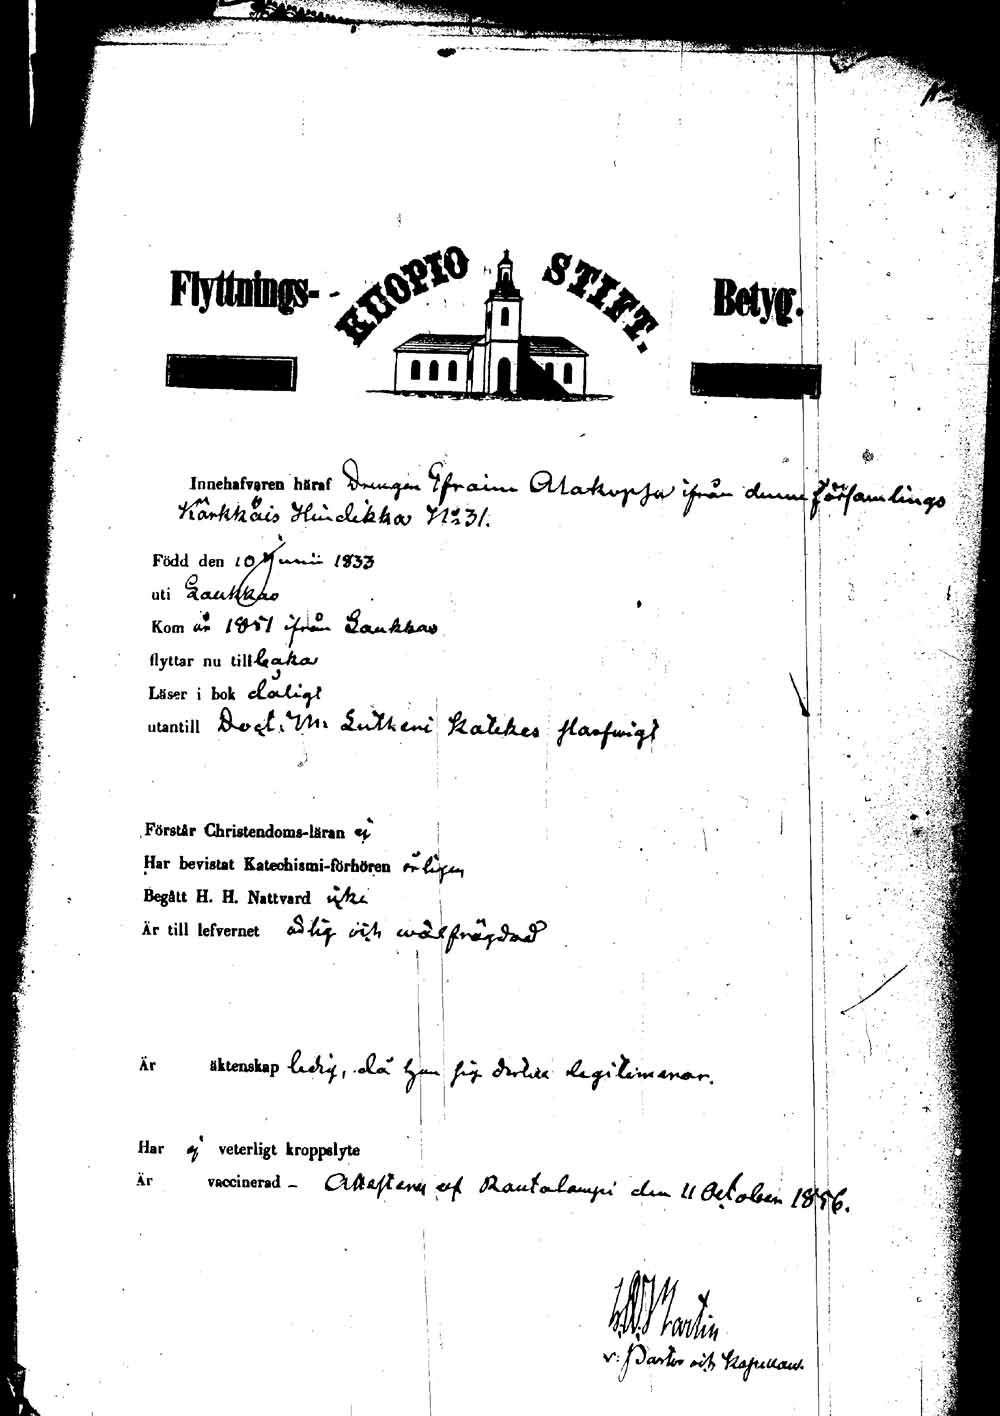 Flyttnings- KUOPIO STIFT. Betyg.
Innehafvaren häraf Drengen Efraim Alakopsa ifrån denna församlings
Kärkkäis Hindikka No 31.
Född den 10 Junii 1833
uti Laukkas
Kom år 1851 ifrån Laukkas
flyttar nu tillbaka
Läser i bok dåligt
utantill Doct. M. Lutheri Katekes
Förstår Christendoms-läran ej
Har bevistat Katechismi-förhören årligen
Begått H. H. Nattvard icke
Är till lefvernet och wälfrägdad
Är äktenskap ledig, då han sig legitimerar.
Har ej veterligt kroppslyte
Är vaccinerad – Attesteras af Rautalampi den 11 October 1856.
Martin
v: Pastor och Kapellan.